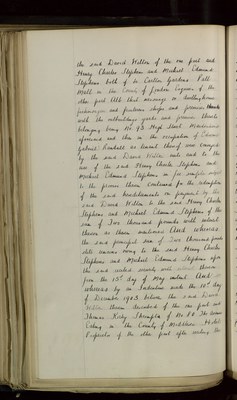 the said David Miller of the one part and
Henry Charles Stephens and Michael Edmund
Stephens both of 6 Carlton Gardens Pall
Mall in the County of London Esquires of the
other part All that messuage or dwellinghouse
and premises
with the outbuildings yards and gardens thereto
belonging being No 93 High Street
aforesaid and then in the occupation of
Gabriel as tenant thereof were conveyed
by the said David Miller unto and to the
use of the said Henry Charles Stephens and
Michael Edmund Stephens in fee simple subject
to the proviso therein contained for the redemption
of the said hereditaments on payment by the
said David Miller to the said Henry Charles
Stephens and Michael Edmund Stephens of the
sum of Two thousand pounds with interest
thereon as therein mentioned And whereas
the said principal sum of Two thousand pounds
still remains owing to the said Henry Charles
Stephens and Michael Edmund Stephens upon
the said recited security with interest thereon
from the 15th day of May instant And
whereas by an Indenture dated the 10th day
of December 1903 between the said David
Miller therein described of the one part and
Thomas of No 88 The
Ealing in the County of Middlesex
of the other part after reciting the